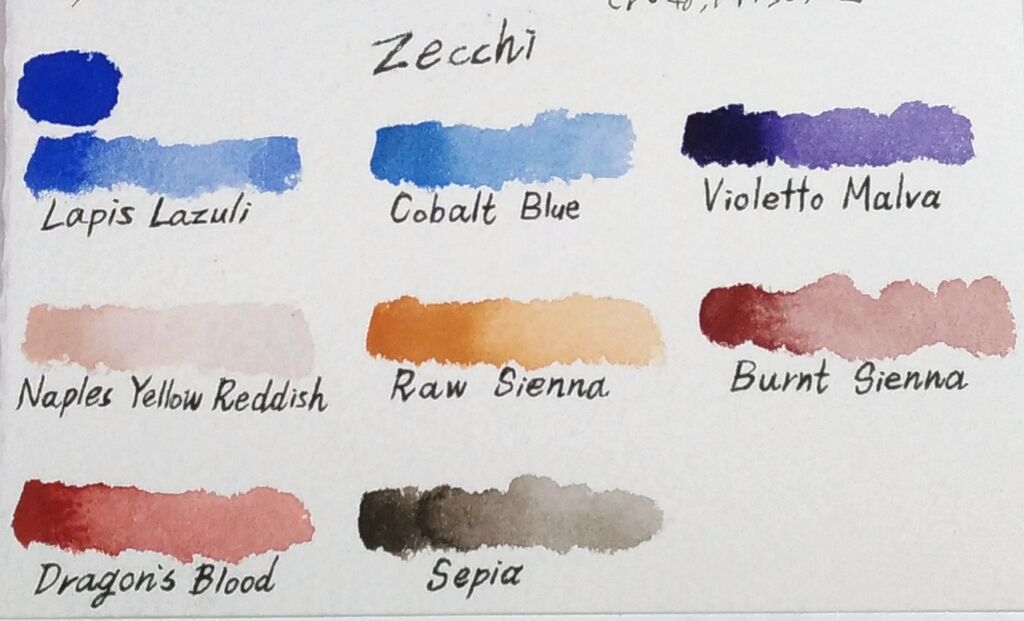 Zecchi
Lapis Lazuli
Cobalt Blue
Violetto Malva
Naples Yellow Reddish
Raw Sienna
Burnt Sienna
Dragon's Blood
Sepia